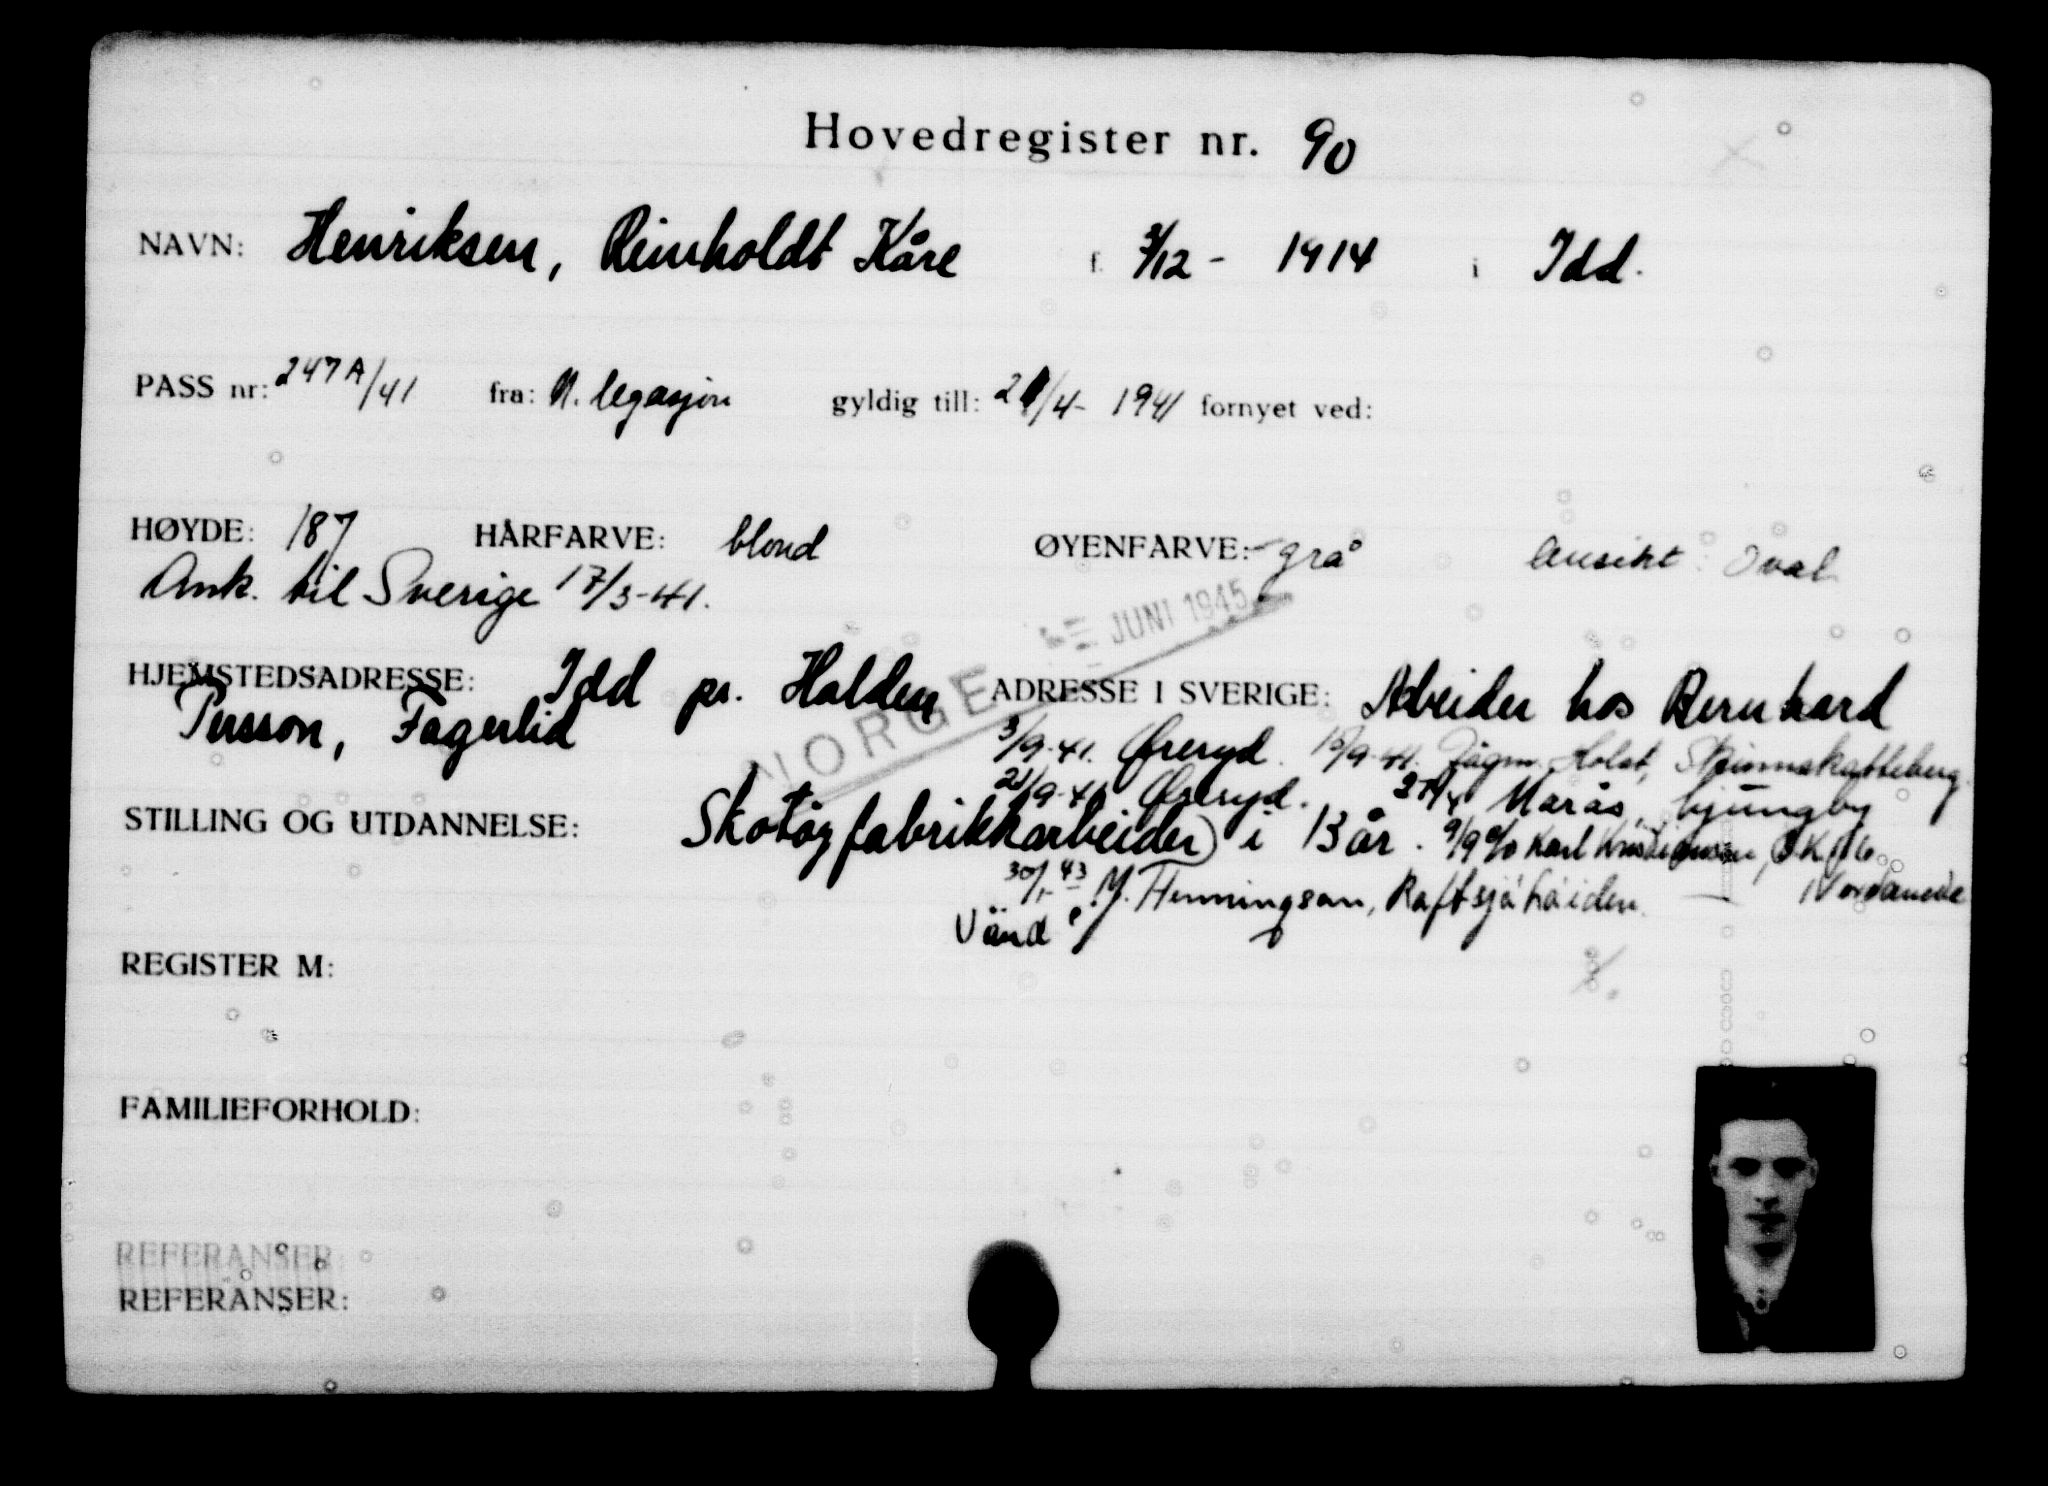 Hovedregister nr. 90
NAVN: Henriksen, Reinholdt Kåre f. /12 - 1914 i Idd.
PASS nr: 247A/41 fra: N. legasjon gyldig till: /4- 1941 fornyet ved:
HØYDE: 187 HÅRFARVE: blond ØYENFARVE: grå Ansikt: Oval
Ank. til Sverige 17/3-41.
JUNI 1945
HJEMSTEDSADRESSE: Idd pr. Halden ADRESSE I SVERIGE: Arbeider hos Bernhard
Persson, Fagerlid
NORGE
3/9-41. Øreryd. 15/9-41. Jägm. Holst, Skinnskatteberg.
21/9-41 Øreryd. Marås, Ljungby
STILLING OG UTDANNELSE: Skotøyfabrikkarbeider i 13 år. 9/9 c/o Karl Kristiansen,
30/1-43 M. Henningson, Raftsjöhöiden.
Vänd!
REGISTER M:
FAMILIEFORHOLD:
REFERANSER:
REFERANSER: